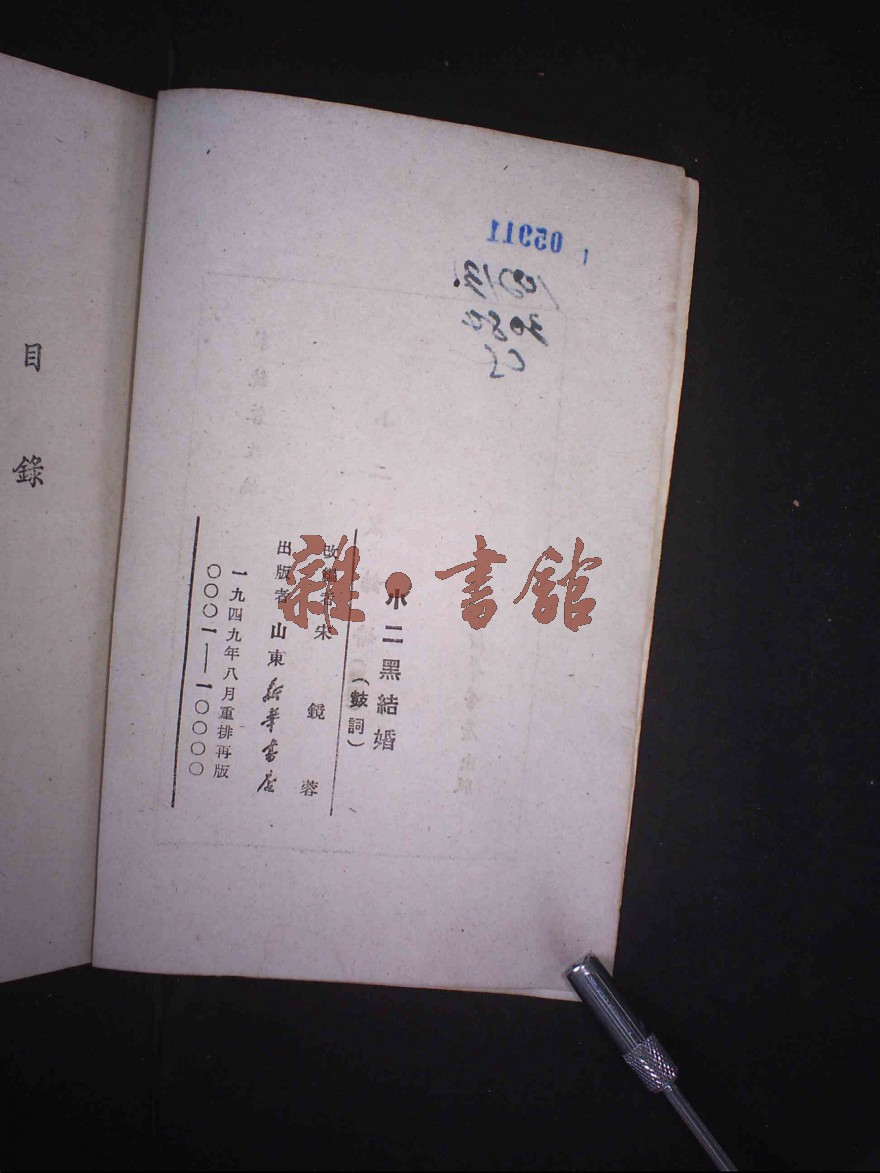 小二黑結婚
(鼓詞)
改編者 宋鏡蓉
出版者 山東新華書店
一九四九年八月重排再版
〇〇〇一—一〇〇〇〇
目錄
雜·書館
05911